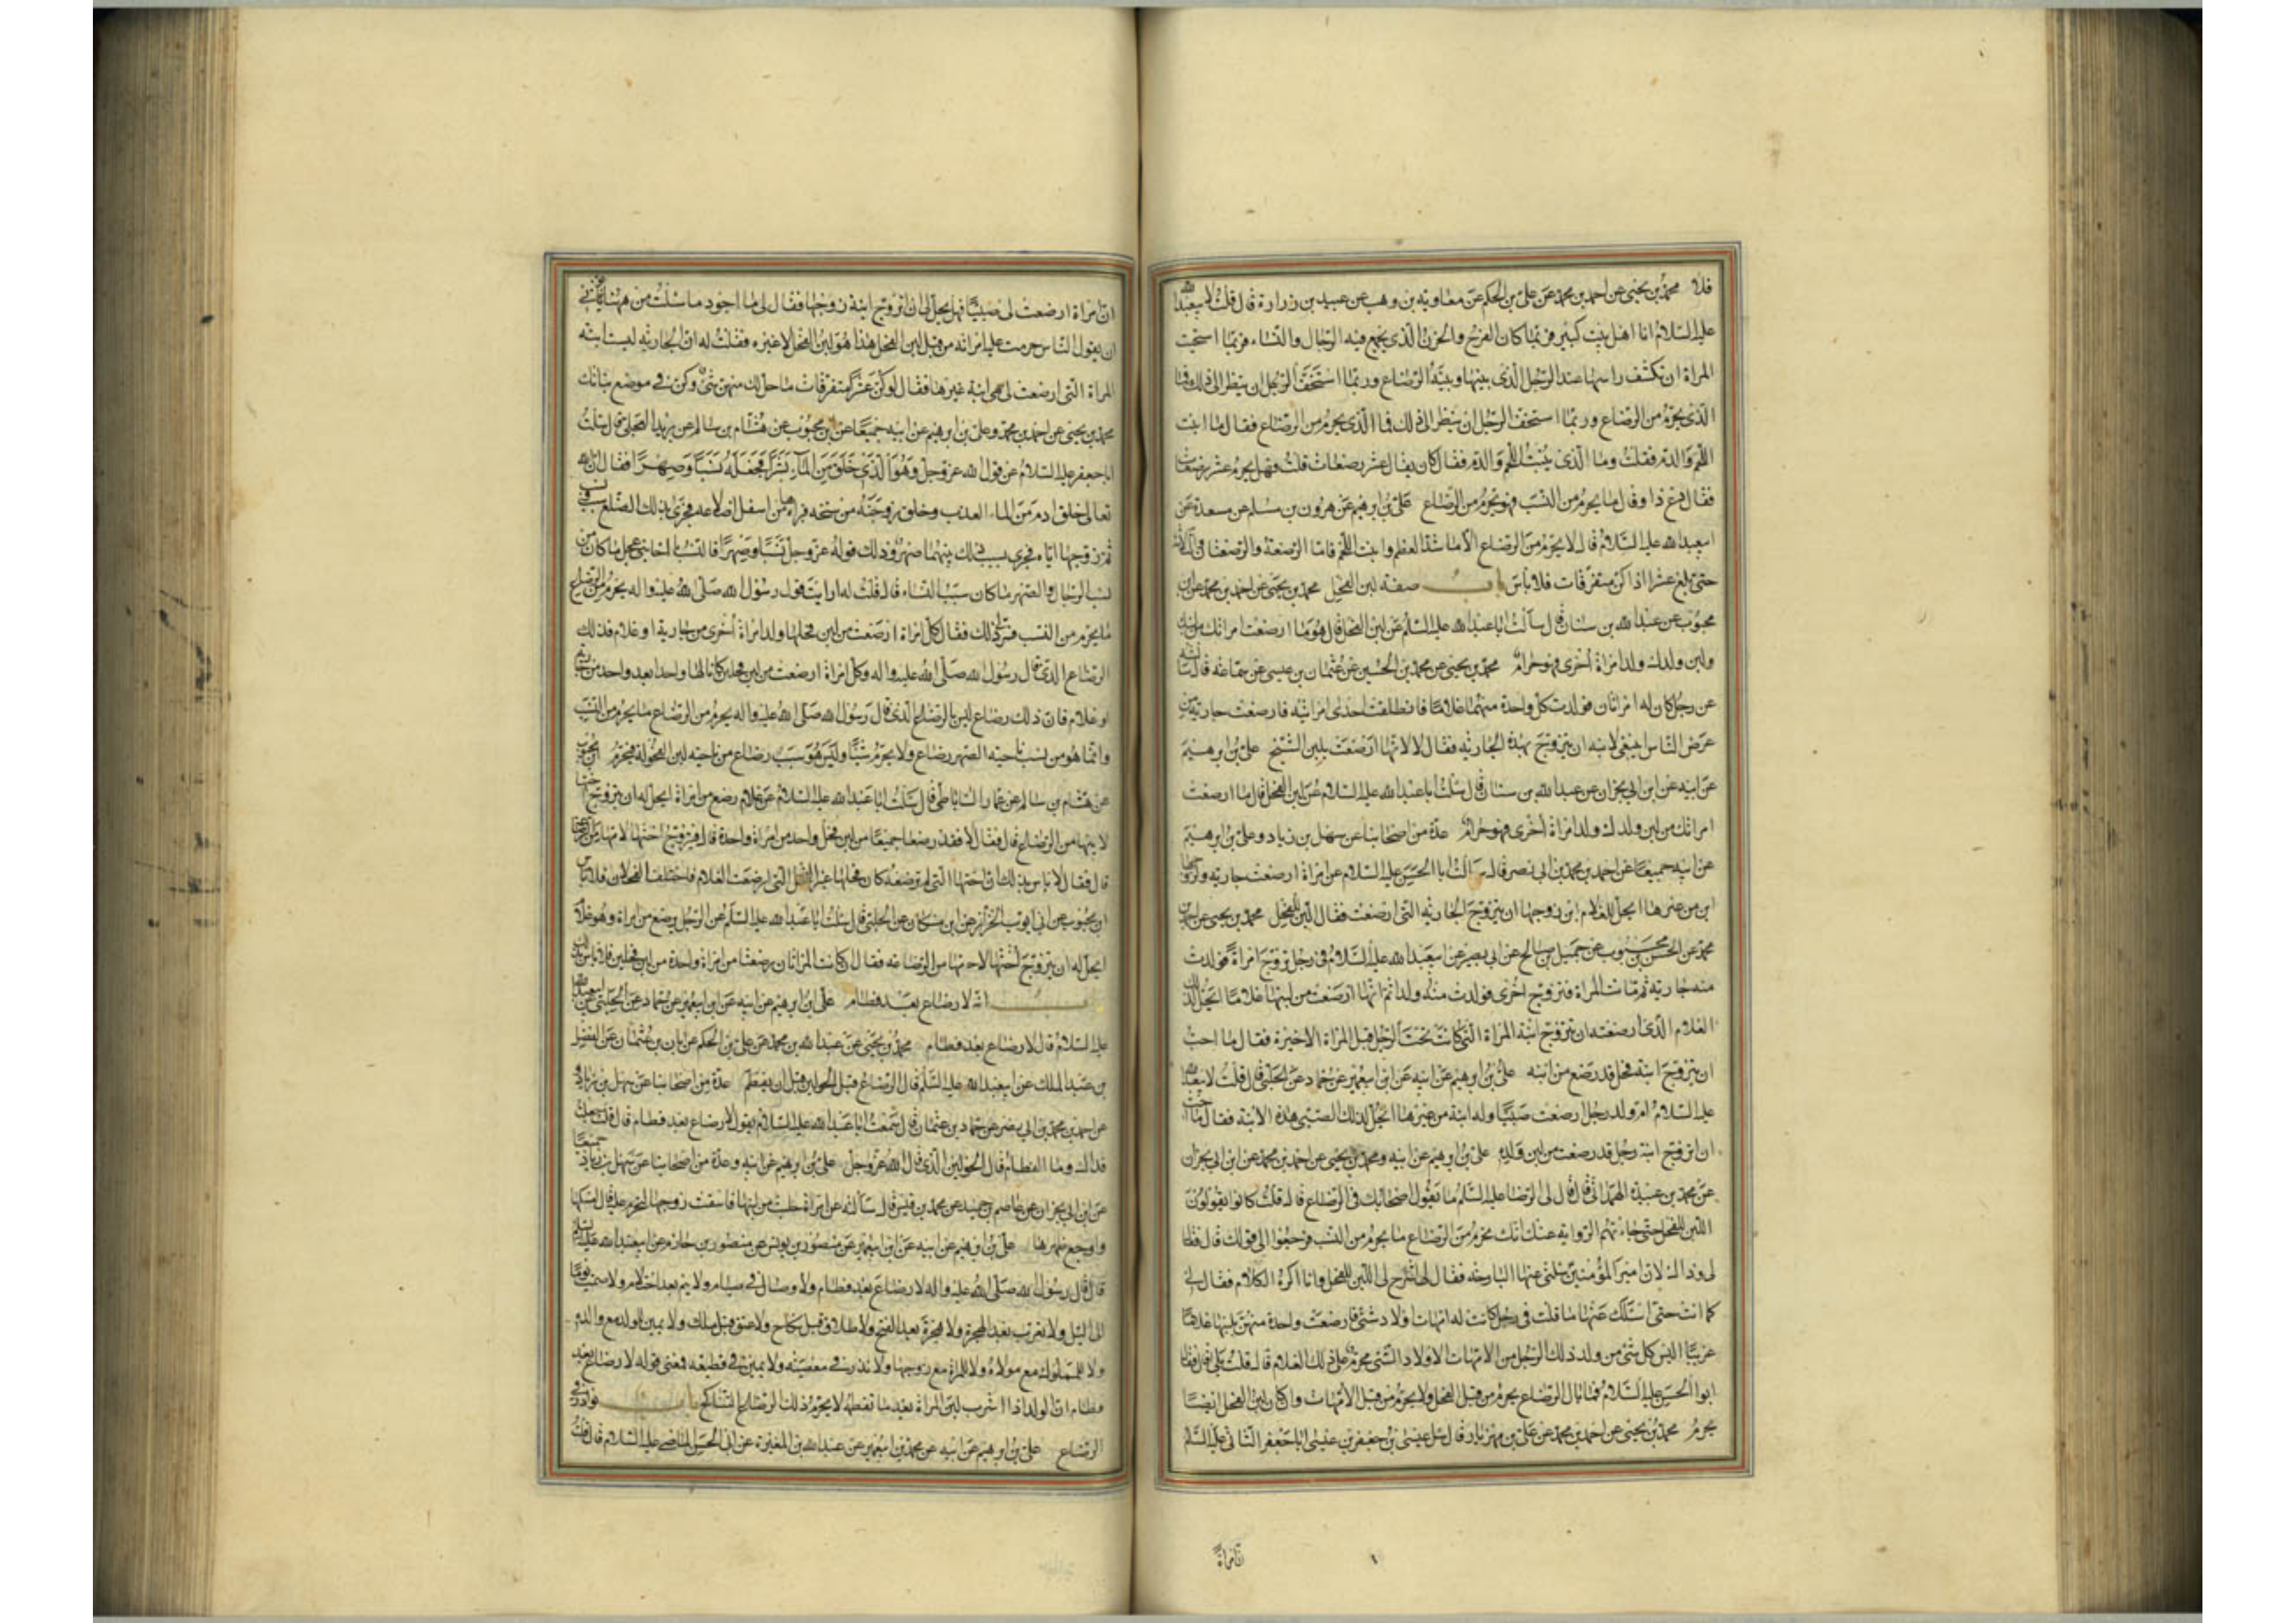 فلا محمد بن يحيى عن احمد بن محمد عن علي بن الحكم عن معاوية بن وهب عن عبيد بن زرارة قال قلت لابيعبد الله
عليه السلام انا اهل بيت كبير فربما كان الفرح والحزن الذي يجتمع فيه الرجال والنساء فربما استحيت
المراة ان تكشف راسها عند الرجل الذي بينها وبينه الرضاع وربما استخف الرجل ان ينظر الى ذلك فما
الذي يحرم من الرضاع وربما استخف الرجل ان ينظر الى ذلك فما الذي يحرم من الرضاع فقال ما انبت
اللحم والدم فقلت وما الذي ينبت اللحم والدم فقال كان يقال عشر رضعات قلت فهل يحرم عشر رضعات
فقال دع ذا وقال ما يحرم من النسب فهو يحرم من الرضاع علي بن ابرهيم عن هرون بن مسلم عن مسعدة عن
ابيعبد الله عليه السلام قال لا يحرم من الرضاع الا ما شد العظم وانبت اللحم فاما الرضعة والرضعتان والثلاث
حتى بلغ عشرا اذا كن متفرقات فلا باس باب صفة لبن الفحل محمد بن يحيى عن احمد بن محمد عن ابن
محبوب عن عبد الله بن سنان قال سالت ابا عبد الله عليه السلم عن لبن الفحل قال هو ما ارضعت امراتك من لبنك
ولبن ولدك ولد امراة اخرى فهو حرام محمد بن يحيى عن محمد بن الحسين عن عثمان بن عيسى عن سماعة قال سالته
عن رجل كان له امراتان فولدت كل واحدة منهما غلاما فانطلقت احدى امراتيه فارضعت جارية من
عرض الناس اينبغي لابنه ان يتزوج بهذه الجارية فقال لا لانها ارضعت بلبن الشيخ علي بن ابرهيم
عن ابيه عن ابن ابي نجران عن عبد الله بن سنان قال سئلت ابا عبد الله عليه السلام عن لبن الفحل قال ما ارضعت
امراتك من لبن ولدك ولد امراة اخرى فهو حرام عدة من اصحابنا عن سهل بن زياد وعلي بن ابرهيم
عن ابيه جميعا عن احمد بن محمد بن ابي نصر قال سالت ابا الحسن عليه السلام عن امراة ارضعت جارية ولزوجها
ابن من غيرها ايحل للغلام ابن زوجها ان يتزوج الجارية التي ارضعت فقال اللبن للفحل محمد بن يحيى عن احمد بن
محمد عن الحسن بن محبوب عن جميل بن صالح عن ابي بصير عن ابيعبد الله عليه السلام في رجل تزوج امراة فولدت
منه جارية ثم ماتت المراة فتزوج اخرى فولدت منه ولدا ثم انها ارضعت من لبنها غلاما ايحل لذلك
الغلام الذي ارضعته ان يتزوج ابنة المراة التي كانت تحت الرجل قبل المراة الاخيرة فقال ما احب
ان يتزوج ابنة فحل قد رضع من لبنه علي بن ابرهيم عن ابيه عن ابن ابيعمير عن حماد عن الحلبي قال قلت لابيعبد الله
عليه السلام ام ولد رجل ارضعت صبيا وله ابنة من غيرها ايحل لذلك الصبي هذه الابنة فقال ما احب
ان اتزوج ابنة رجل قد رضعت من لبن ولده علي بن ابرهيم عن ابيه ومحمد بن يحيى عن احمد بن محمد عن ابن ابي نجران
عن محمد بن عبيدة الهمداني قال قال لي الرضا عليه السلم ما يقول اصحابك في الرضاع قال قلت كانوا يقولون
اللبن للفحل حتى جاءتهم الرواية عنك انك تحرم من الرضاع ما يحرم من النسب فرجعوا الى قولك قال فقال
لي وذاك لان امير المؤمنين سئلني عنها البارحة فقال لي اشرح لي اللبن للفحل وانا اكره الكلام فقال لي
كما انت حتى اسئلك عنها ما قلت في رجل كانت له امهات اولاد شتى فارضعت واحدة منهن بلبنها غلاما
غريبا اليس كل شئ من ولد ذلك الرجل من الامهات الاولاد الشتى محرم على ذلك الغلام قال قلت بلى قال فقال
ابو الحسن عليه السلام فما بال الرضاع يحرم من قبل الفحل ولا يحرم من قبل الامهات وان كان لبن الفحل ايضا
يحرم محمد بن يحيى عن احمد بن محمد عن علي بن مهزيار قال سئل عيسى بن جعفر بن عيسى ابا جعفر الثاني عليه السلم
ان امراة
ان امراة ارضعت لي صبيا فهل يحل لي ان اتزوج ابنة زوجها فقال لي ما اجود ما سئلت من ههنا يؤتى
ان يقول الناس حرمت عليه امراته من قبل لبن الفحل هذا هو لبن الفحل لا غيره فقلت له ان الجارية ليست ابنة
المراة التي ارضعت لي هي ابنة غيرها فقال لو كن عشرا متفرقات ما حل لك منهن شئ وكن في موضع بناتك
محمد بن يحيى عن احمد بن محمد وعلي بن ابرهيم عن ابيه جميعا عن ابن محبوب عن هشام بن سالم عن بريد العجلي قال سئلت
ابا جعفر عليه السلام عن قول الله عز وجل وهو الذي خلق من الماء بشرا فجعله نسبا وصهرا فقال ان الله
تعالى خلق ادم من الماء العذب وخلق زوجته من سنخه فبراها من اسفل اضلاعه فجرى بذلك الضلع سبب ونسب
ثم زوجها اياه فجرى بسبب ذلك بينهما صهر وذلك قوله عز وجل نسبا وصهرا فالنسب يا اخا بني عجل ما كان من
نسب الرجال والصهر ما كان سبب النساء قال قلت له ارايت قول رسول الله صلى الله عليه واله يحرم من الرضاع
ما يحرم من النسب فسر لي ذلك فقال كل امراة ارضعت من لبن فحلها ولد امراة اخرى من جارية او غلام فذلك
الرضاع الذي قال رسول الله صلى الله عليه واله وكل امراة ارضعت من لبن فحلين كانا لها واحدا بعد واحد من جارية
او غلام فان ذلك رضاع ليس بالرضاع الذي قال رسول الله صلى الله عليه واله يحرم من الرضاع ما يحرم من النسب
وانما هو من نسب ناحية الصهر رضاع ولا يحرم شيئا وليس هو سبب رضاع من ناحية لبن الفحولة فيحرم ابن محبوب
عن هشام بن سالم عن عمار الساباطي قال سئلت ابا عبد الله عليه السلام عن غلام رضع من امراة ايحل له ان يتزوج اختها
لابيها من الرضاع قال فقال لا فقد رضعا جميعا من لبن فحل واحد من امراة واحدة قال فيتزوج اختها لامها من الرضاعة
قال فقال لا باس بذلك ان اختها التي لم ترضعه كان فحلها غير الفحل التي ارضعت الغلام فاختلف الفحلان فلا باس
ابن محبوب عن ابي ايوب الخزاز عن ابن مسكان عن الحلبي قال سئلت ابا عبد الله عليه السلم عن الرجل يرضع من امراة وهو غلام
ايحل له ان يتزوج اختها لامها من الرضاعة فقال ان كانت المراتان رضعتا من امراة واحدة من لبن فحلين فلا باس بذلك
باب انه لا رضاع بعد فطام علي بن ابرهيم عن ابيه عن ابن ابيعمير عن حماد عن الحلبي عن ابيعبد الله
عليه السلام قال لا رضاع بعد فطام محمد بن يحيى عن عبد الله بن محمد عن علي بن الحكم عن ابان بن عثمان عن الفضل
بن عبد الملك عن ابيعبد الله عليه السلم قال الرضاع قبل الحولين قبل ان يفطم عدة من اصحابنا عن سهل بن زياد
عن احمد بن محمد بن ابي نصر عن حماد بن عثمان قال سمعت ابا عبد الله عليه السلام يقول لا رضاع بعد فطام قال قلت جعلت
فداك وما الفطام قال الحولين الذي قال الله عز وجل علي بن ابرهيم عن ابيه وعدة من اصحابنا عن سهل بن زياد جميعا
عن ابن ابي نجران عن عاصم بن حميد عن محمد بن قيس قال سالته عن امراة حلبت من لبنها فاسقت زوجها لتحرم عليه قال امسكها
واوجع ظهرها علي بن ابرهيم عن ابيه عن ابن ابيعمير عن منصور بن يونس عن منصور بن حازم عن ابيعبد الله عليه السلم
قال قال رسول الله صلى الله عليه واله لا رضاع بعد فطام ولا وصال في صيام ولا يتم بعد احتلام ولا صمت يوما
الى الليل ولا تعرب بعد الهجرة ولا هجرة بعد الفتح ولا طلاق قبل نكاح ولا عتق قبل ملك ولا يمين لولد مع والده
ولا للمملوك مع مولاه ولا للمراة مع زوجها ولا نذر في معصية ولا يمين في قطيعة فمعنى قوله لا رضاع بعد
فطام ان الولد اذا شرب لبن المراة بعد ما تفطمه لا يحرم ذلك الرضاع التناكح باب نوادر في
الرضاع علي بن ابرهيم عن ابيه عن محمد بن ابيعمير عن عبد الله بن المغيرة عن ابي الحسن الماضي عليه السلام قال قلت